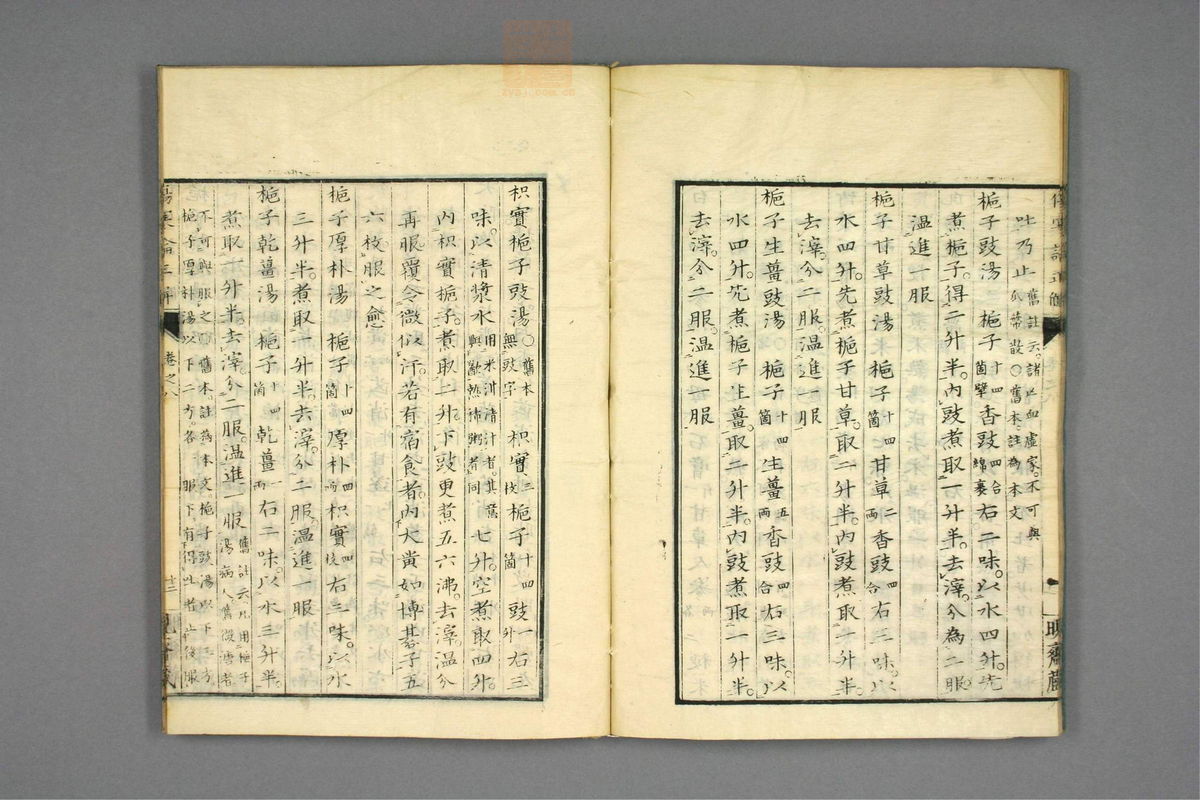 吐乃止 舊註云。諸亡血虛家。不可與瓜蔕散〇舊本。註為本文
梔子豉湯 梔子十四箇擘香豉四合綿裹右二味。以水四升。先
煮梔子。得二升半。內豉煮取一升半。去滓。分為二服
溫進一服
梔子甘草豉湯 梔子十四箇甘草二兩香豉四合右三味。以
水四升。先煮梔子甘草。取二升半。內豉煮取一升半。
去滓。分二服。溫進一服
梔子生薑豉湯〇梔子十四箇生薑五兩香豉四合右三味。以
水四升。先煮梔子生薑。取二升半。內豉煮取一升半。
去滓。分二服。溫進一服
明齋藏
枳實梔子豉湯〇舊本無豉字 枳實三枚梔子十四箇豉一升右三
味。以清漿水用米泔清汁者。其意與歠熱稀粥者同七升。空煮取四升。
內枳實梔子。煮取二升。下豉更煮五六沸。去滓。溫分
再服。覆令微似汗。若有宿食者。內大黃如博棊子五
六枚。服之愈
梔子厚朴湯 梔子十四箇厚朴四兩枳實四枚右三味。以水
三升半。煮取一升半。去滓。分二服。溫進一服
梔子乾薑湯 梔子十四箇乾薑一兩右二味。以水三升半。
煮取一升半。去滓。分二服。溫進一服 舊註云。凡用梔子湯病人舊微溏者
不可與服之〇舊本。註為本文。梔子豉湯以下三方
梔子厚朴湯以下二方。各服下。有得吐者止後服
卷之八
十三